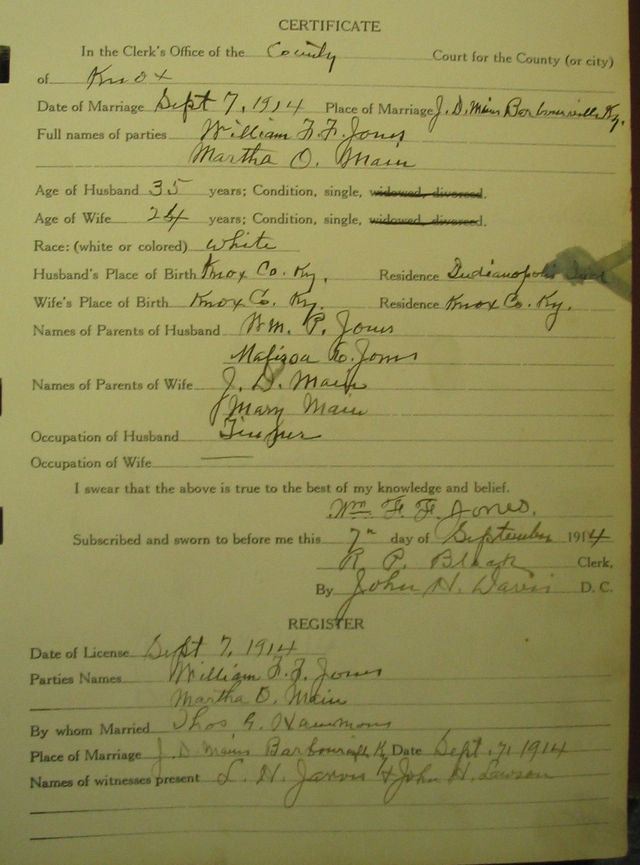 CERTIFICATE
In the Clerk's Office of the County Court for the County (or city)
of Knox
Date of Marriage Sept 7, 1914 Place of Marriage J. D. Mains Barbourville Ky.
Full names of parties William F. F. Jones
Martha O. Main
Age of Husband 35 years; Condition, single, widowed, divorced.
Age of Wife 24 years; Condition, single, widowed, divorced.
Race: (white or colored) white
Husband's Place of Birth Knox Co. Ky. Residence Indianapolis Ind
Wife's Place of Birth Knox Co. Ky. Residence Knox Co. Ky.
Names of Parents of Husband Wm. P. Jones
Jones
Names of Parents of Wife J. D. Main
Mary Main
Occupation of Husband
Occupation of Wife
I swear that the above is true to the best of my knowledge and belief.
Wm. F. F. Jones.
Subscribed and sworn to before me this 7" day of September 1914
R. P. Black Clerk,
By John H. Davis D. C.
REGISTER
Date of License Sept 7, 1914
Parties Names William F. F. Jones
Martha O. Main
By whom Married Thos G. Hammons
Place of Marriage J. D. Mains Barbourville K Date Sept. 7, 1914
Names of witnesses present L. H. Jarvis & John H. Lawson